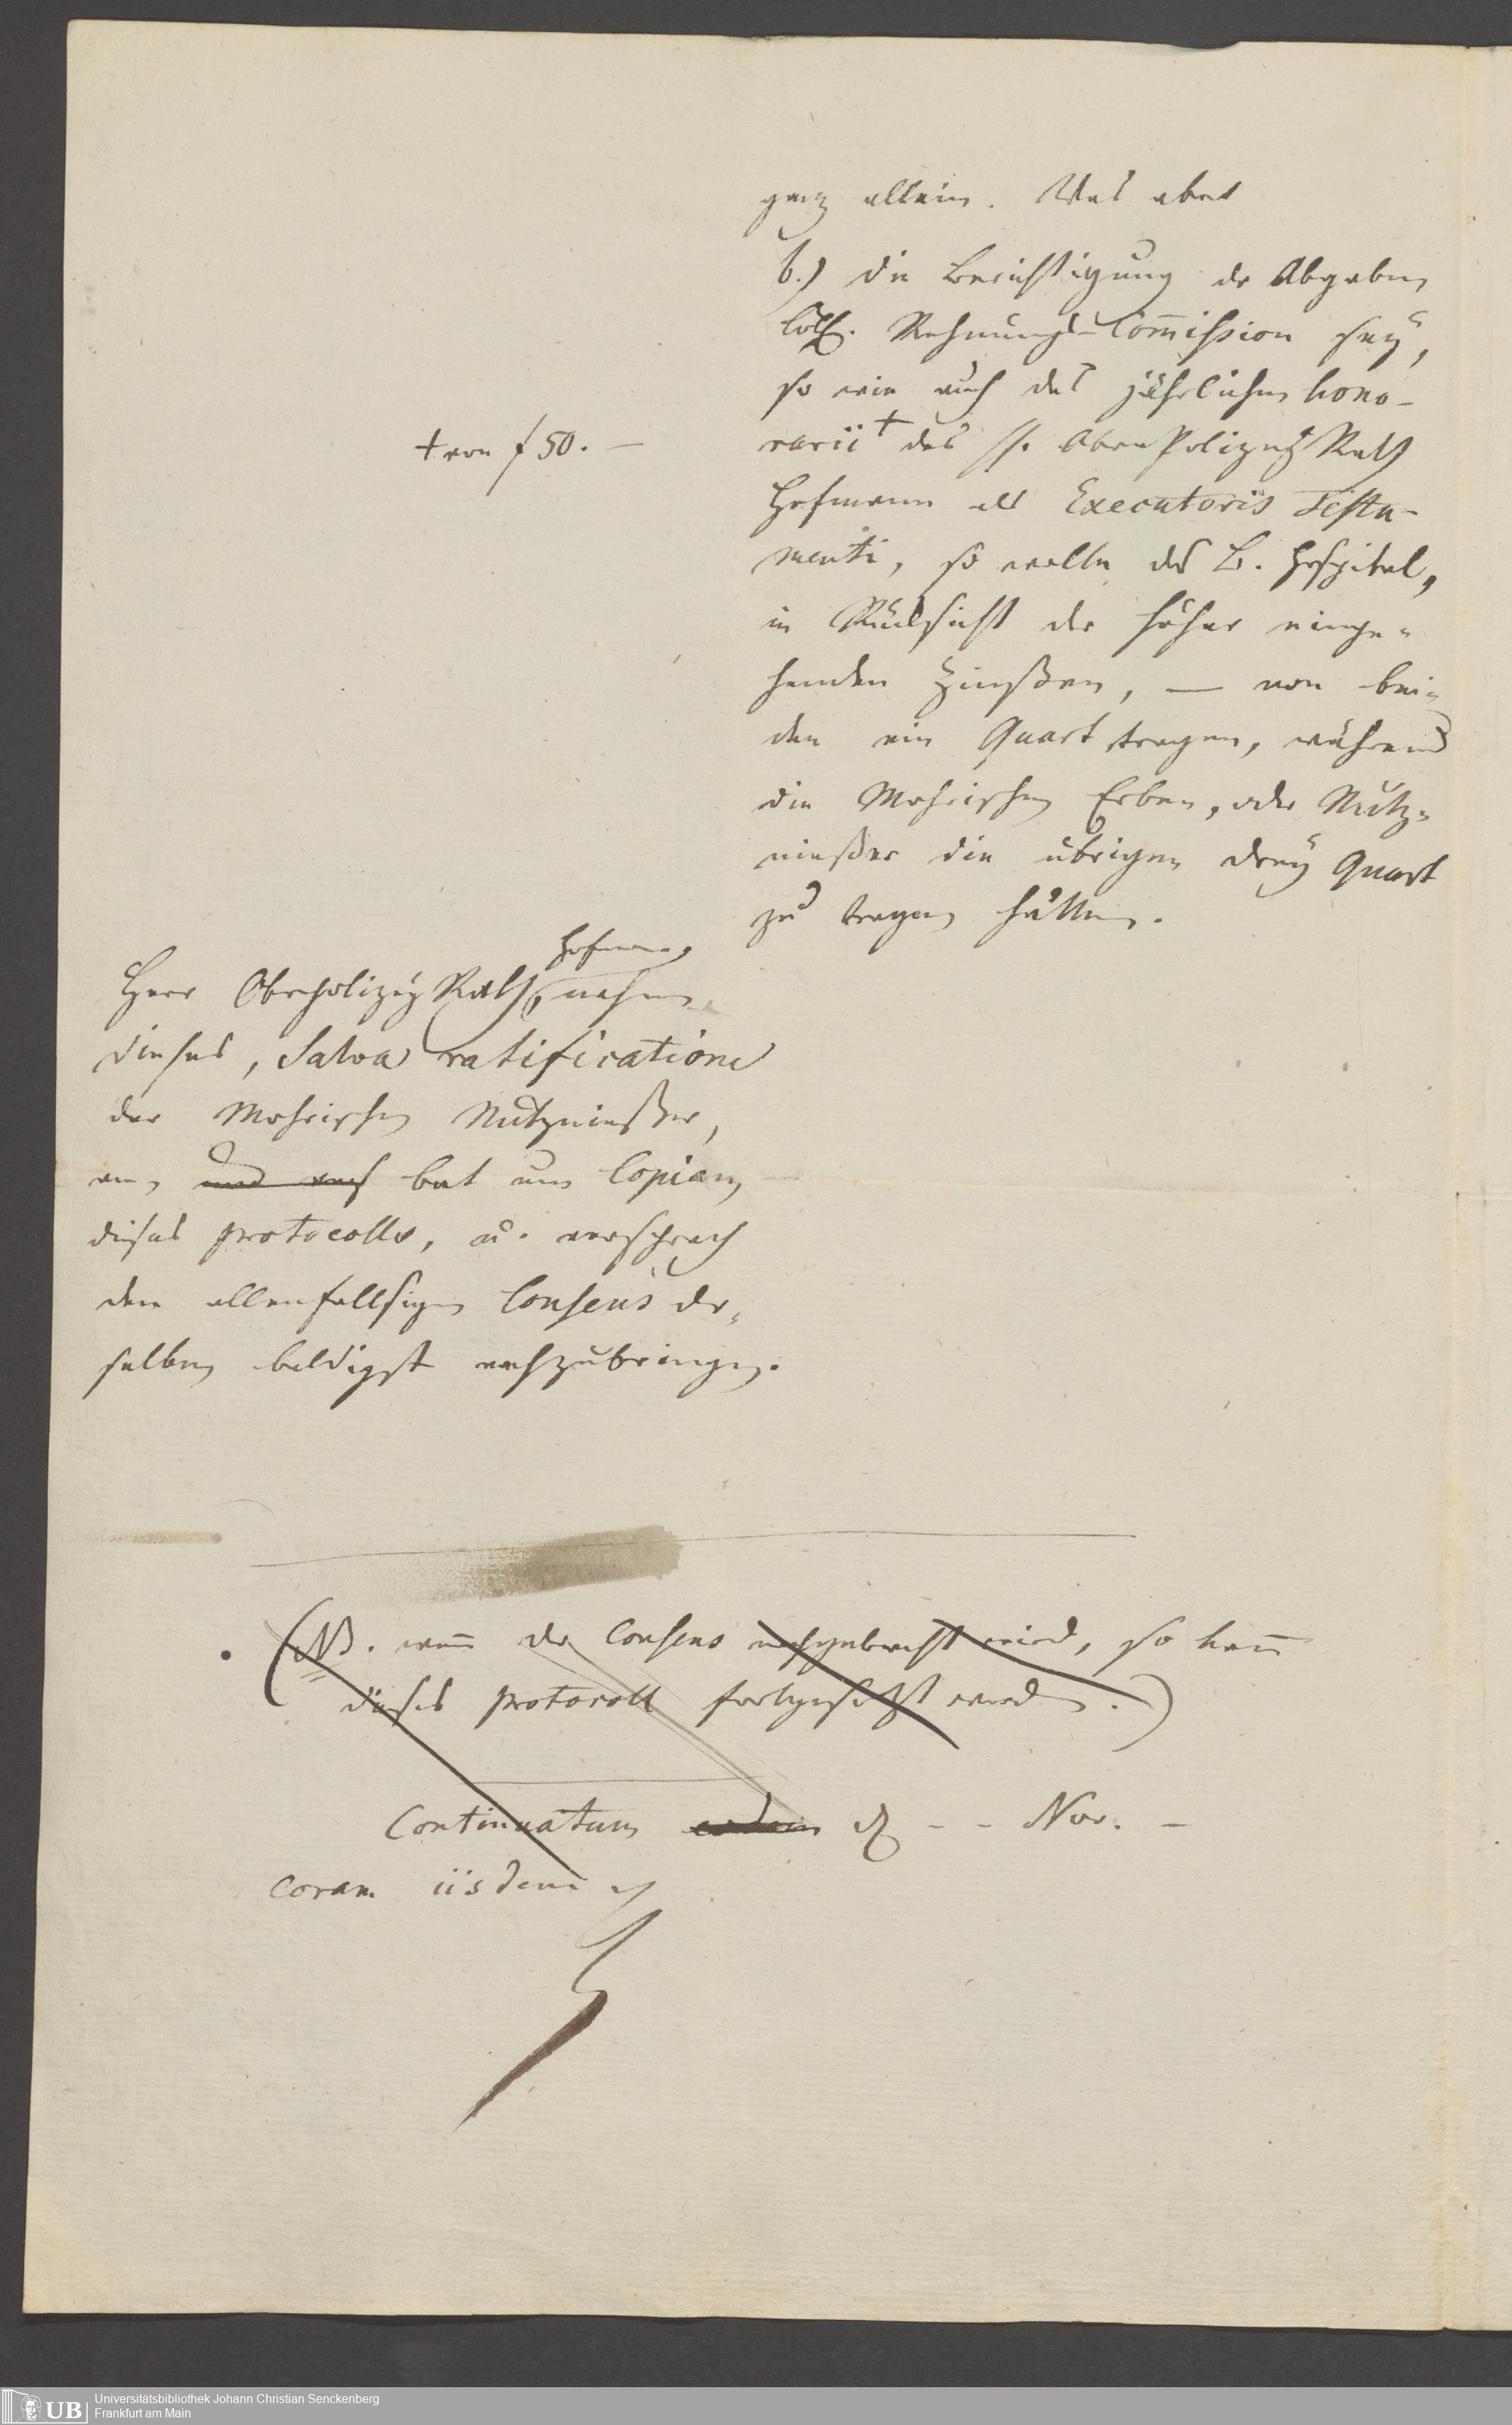 ganz allein. Was aber
b.) die Berichtigung der Abgaben
löbl. Rechnungs-Com̅ission seÿ,
so wie auch des jährlichen hono-
rarii + des H. Ober Polizeÿ Rath
+ von f 50. —
Hofmann als Executoris Testa-
menti, so wolle das B. Hospital,
in Rücksicht der höher einge-
henden Zinßen, — von bei-
den ein Quart tragen, während
die Mohrischen Erben, oder Nutz-
nießer die übrigen dreÿ Quart
zu tragen hätten.
Hofmann
Herr Oberpolizeÿ Rath nahm
dieses, Salva ratificatione
der Mohrischen Nutznießer,
an, und auch bat um Copiam
dieses protocolls, u. versprach
den allenfallsigen Consens der-
selben baldigst nachzubringen.
(NB. wen̅ der Consens nachgebracht wird, so kan̅
dieses protocoll fortgesetzt werden.)
Continuatum eodem d. - - Nov. -
coram iisdem
Universitätsbibliothek Johann Christian Senckenberg
Frankfurt am Main
UB